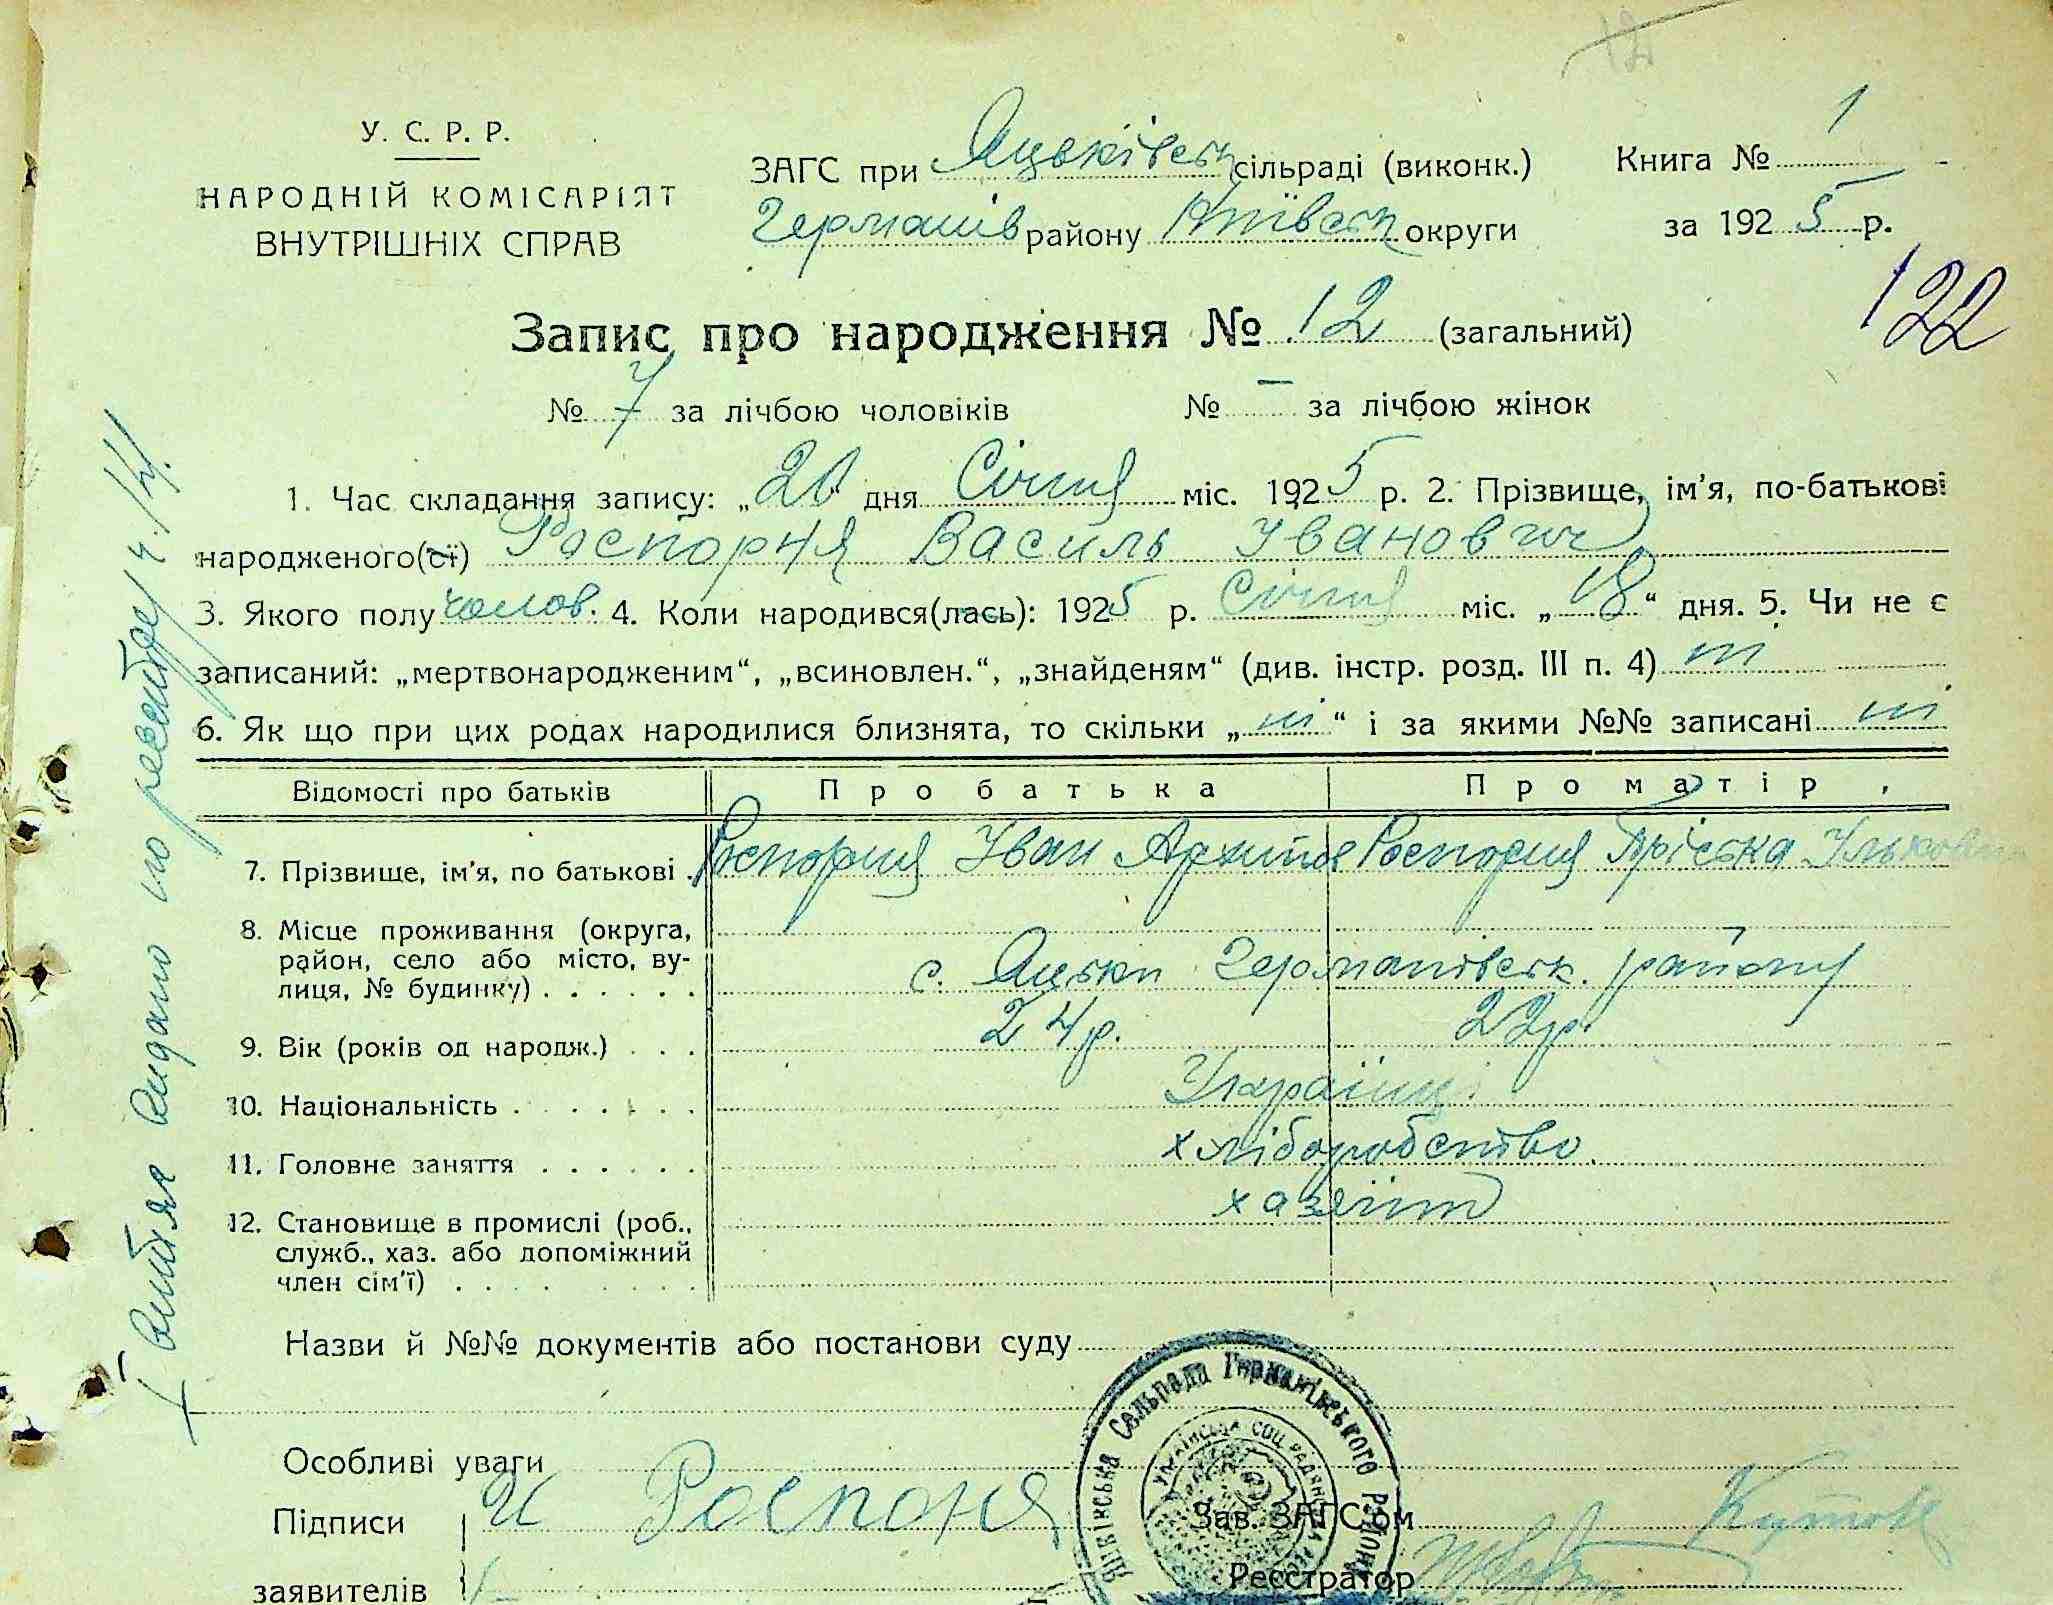 12
У. С. Р. Р.
НАРОДНІЙ КОМІСАРІЯТ
ВНУТРІШНІХ СПРАВ
ЗАГС при Яцьківськ сільраді (виконк.)
Германів району Київськ округи
Книга № 1
за 1925 р.
122
Запис про народження № 12 (загальний)
№ 7 за лічбою чоловіків № — за лічбою жінок
1. Час складання запису: „20 дня Січня міс. 1925 р. 2. Прізвище, ім'я, по-батькові
народженого(сї) Роспорня Василь Іванович
3. Якого полу чолов. 4. Коли народився(лась): 1925 р. Січня міс. „18“ дня. 5. Чи не є
записаний: „мертвонародженим“, „всиновлен.“, „знайденям“ (див. інстр. розд. III п. 4) ні
6. Як що при цих родах народилися близнята, то скільки „ні“ і за якими №№ записані ні
Відомості про батьків Про батька Про матір
7. Прізвище, ім'я, по батькові . Роспорня Іван Архипов Роспорня Пріська
8. Місце проживання (округа, район, село або місто, вулиця, № будинку) . . . . . . с. Яцьки Германівськ. району
9. Вік (років од народж.) . . . 24 р. 22 р.
10. Національність . . . . . . . Українці
11. Головне заняття . . . . . . хліборобство
12. Становище в промислі (роб., служб., хаз. або допоміжний член сім'ї) . . . . . . . хазяїни
Назви й №№ документів або постанови суду
Особливі уваги
Підписи И Роспоня
заявителів
Зав. ЗАГС'ом
Реєстратор
Сельрада Германівського Района
Витяг видано по